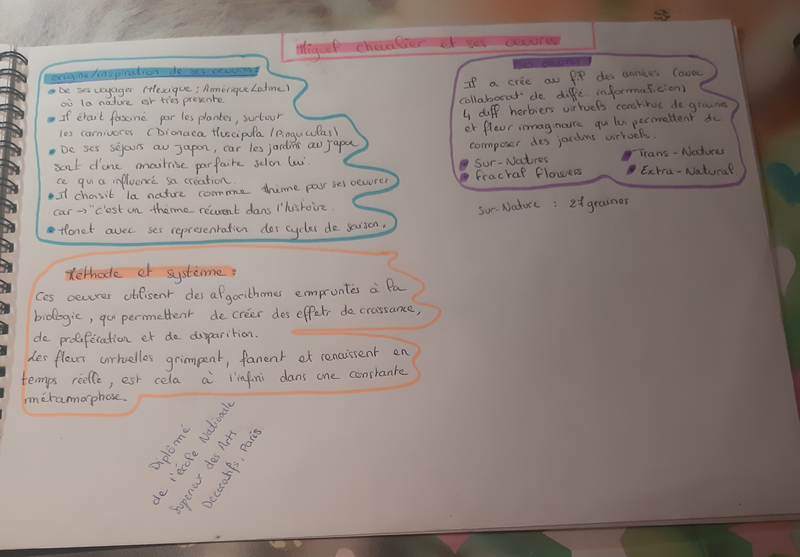 Miguel chevalier et ses oeuvres
origine/inspiration de ses oeuvres:
De ses voyages (Mexique; Amérique Latine)
où la nature est très présente.
Il était fasciné par les plantes, surtout
les carnivores (Dionaea Muscipula / Pinguiculas)
De ses séjours au japon, car les jardins au japon
sont d'une maitrise parfaite selon lui.
ce qui a influencé sa création.
Il choisit la nature comme thème pour ses oeuvres
car → "c'est un thème récurent dans l'histoire.
Monet avec ses representation des cycles de saison.
Méthode et système:
Ces oeuvres utilisent des algorithmes empruntés à la
biologie, qui permettent de créer des effets de croissance,
de prolifération et de disparition.
Les fleur virtuelles grimpent, fanent et renaissent en
temps réelle, est cela à l'infini dans une constante
métamorphose.
Diplômé
de l'école Nationale
Superieur des Arts
Decoratifs, Paris.
Ses oeuvres
Il a crée au fil des années (avec
collaborat° de diffé informaticien)
4 diff herbiers virtuels constitus de graines
et fleur imaginaire qui lui permettent de
composer des jardins virtuels.
Sur-Natures
Trans-Natures
Fractal flowers
Extra-Natural
Sur-Nature : 27 graines